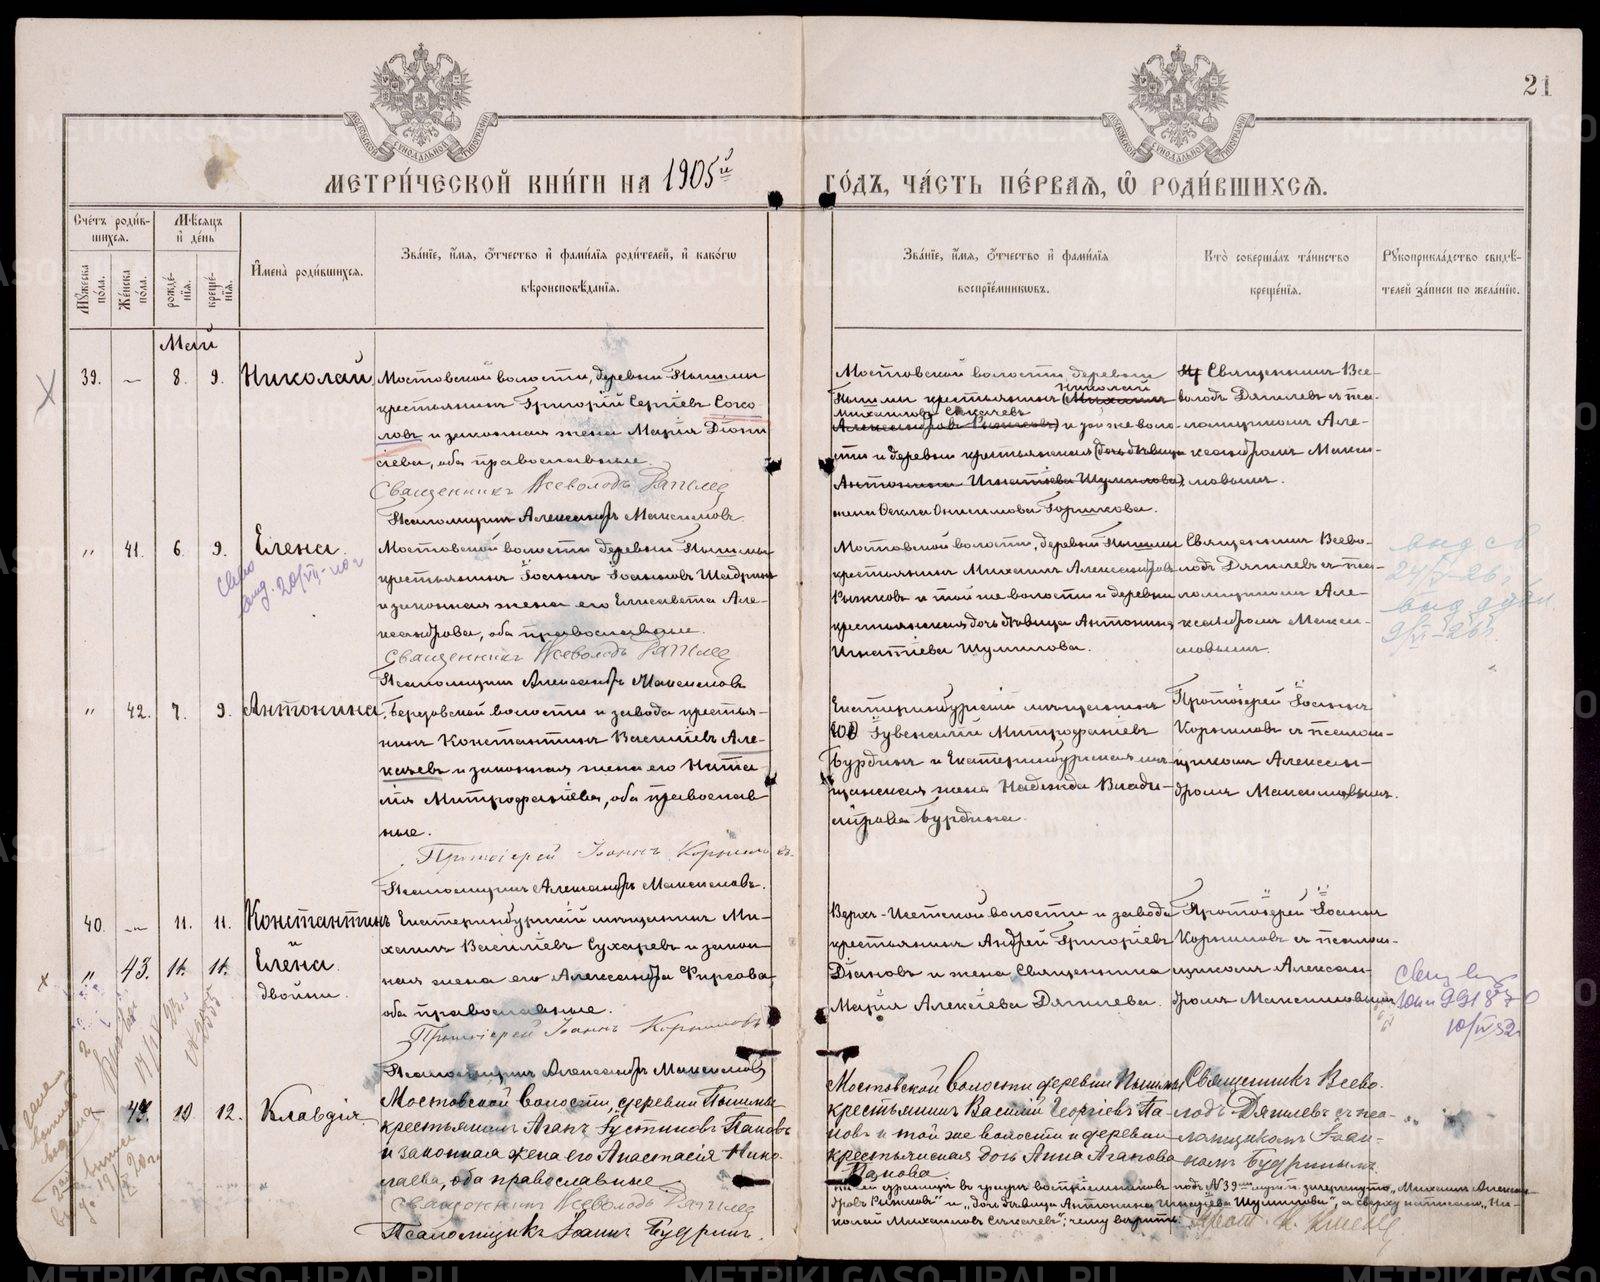 21
МЕТРИ́ЧЕСКОЙ КНИ́ГИ НА 1905й
ГО́ДЪ, ЧА́СТЬ ПЕ́РВАЯ, Ѿ РОДИ́ВШИХСЯ.
Сче́тъ роди́в-
шихся.
Мѣсяцъ
и де́нь
Му́жеска по́ла.
Же́нска по́ла.
рожде́-
нія.
креще́-
нія.
И҆мена̀ роди́вшихся.
Зва́ніе, и҆́мя, ѻ҆́тчество и҆ фами́лія роди́телей, и҆ како́гѡ
вѣроисповѣ́данія.
Зва́ніе, и҆́мя, ѻ҆́тчество и҆ фами́лія
воспрїе́мниковъ.
Кто̀ соверша́лъ та́инство
креще́нія.
Рꙋкоприкла́дство свидѣ́-
телей за́писи по жела́нію.
Май
39. — 8. 9. Николай
Мостовской волости, деревни Пышмы
крестьянинъ Григорій Сергіевъ Соко-
ловъ и законная жена Марія Діони-
сіева, оба православные.
Священникъ Всеволодъ Дягилев
Псаломщикъ Александръ Максимовъ.
Мостовской волости, деревни
Николай
Пышмы крестьянинъ (Михаилъ
Михаиловъ Сысачевъ
Александровъ Рыжковъ) и той же воло-
сти и деревни крестьянская (дочь дѣвица
Антонина Игнатіева Шумилова)
жена Ѳекла Онисимова Горшкова.
Священникъ Все-
володъ Дягилевъ съ пса-
ломщикомъ Але-
ксандромъ Макси-
мовымъ.
" 41. 6. 9. Елена.
Мостовской волости деревни Пышмы
крестьянинъ Іоаннъ Іоанновъ Шадринъ
и законная жена его Елисавета Але-
ксандрова, оба православные.
Священникъ Всеволодъ Дягилев
Псаломщикъ Александръ Максимовъ
Мостовской волости, деревни Пышмы
крестьянинъ Михаилъ Александровъ
Рыжковъ и той же волости и деревни
крестьянская дочь дѣвица Антонина
Игнатіева Шумилова.
Священникъ Всево-
лодъ Дягилевъ съ пса-
ломщикомъ Але-
ксандромъ Макси-
мовымъ.
" 42. 7. 9. Антонина.
Березовской волости и завода крестья-
нинъ Константинъ Василіевъ Але-
и законная жена его Ната-
лія Митрофаніева, оба православ-
ные.
Протоіерей Іоаннъ Корниловъ.
Псаломщикъ Александръ Максимовъ.
Екатеринбургскій мѣщанинъ
Іувеналій Митрофаніевъ
Бурдинъ и Екатеринбургская мѣ-
щанская жена Надежда Влади-
мірова Бурдина.
Протоіерей Іоаннъ
Корниловъ съ псалом-
щикомъ Алексан-
дромъ Максимовымъ.
40. — 11. 11. Константинъ
и
" 43. 11. 11. Елена.
двойни.
Екатеринбургскій мѣщанинъ Ми-
хаилъ Василіевъ Сухаревъ и закон-
ная жена его Александра Фирсова,
оба православные.
Протоіерей Іоаннъ Корниловъ
Псаломщикъ Александръ Максимовъ
Верхъ-Исетской волости и завода
крестьянинъ Андрей Григоріевъ
Діановъ и жена Священника
Марія Алексіева Дягилева.
Протоіерей Іоаннъ
Корниловъ съ псалом-
щикомъ Алексан-
дромъ Максимовымъ
— 44. 10 12. Клавдія
Мостовской волости, деревни Пышмы
крестьянинъ Агапъ Іустиновъ Пановъ
и законная жена его Анастасія Нико-
лаева, оба православные
Священникъ Всеволодъ Дягилев
Псаломщикъ Іоаннъ Будринъ.
Мостовской волости деревни Пышмы
крестьянинъ Василій Георгіевъ Па-
новъ и той же волости и деревни
крестьянская дочь Анна Агапова
Панова
Священникъ Всево-
лодъ Дягилевъ съ пса-
ломщикомъ Іоан-
номъ Будринымъ.
на сей страницѣ въ графѣ воспріемниковъ подъ № 39 зачеркнуто „Михаилъ Алексан-
дровъ Рыжковъ" и „дочь дѣвица Антонина Игнатіева Шумилова", а сверху написано „Ни-
колай Михаиловъ Сысачевъ"; чему вѣрить.